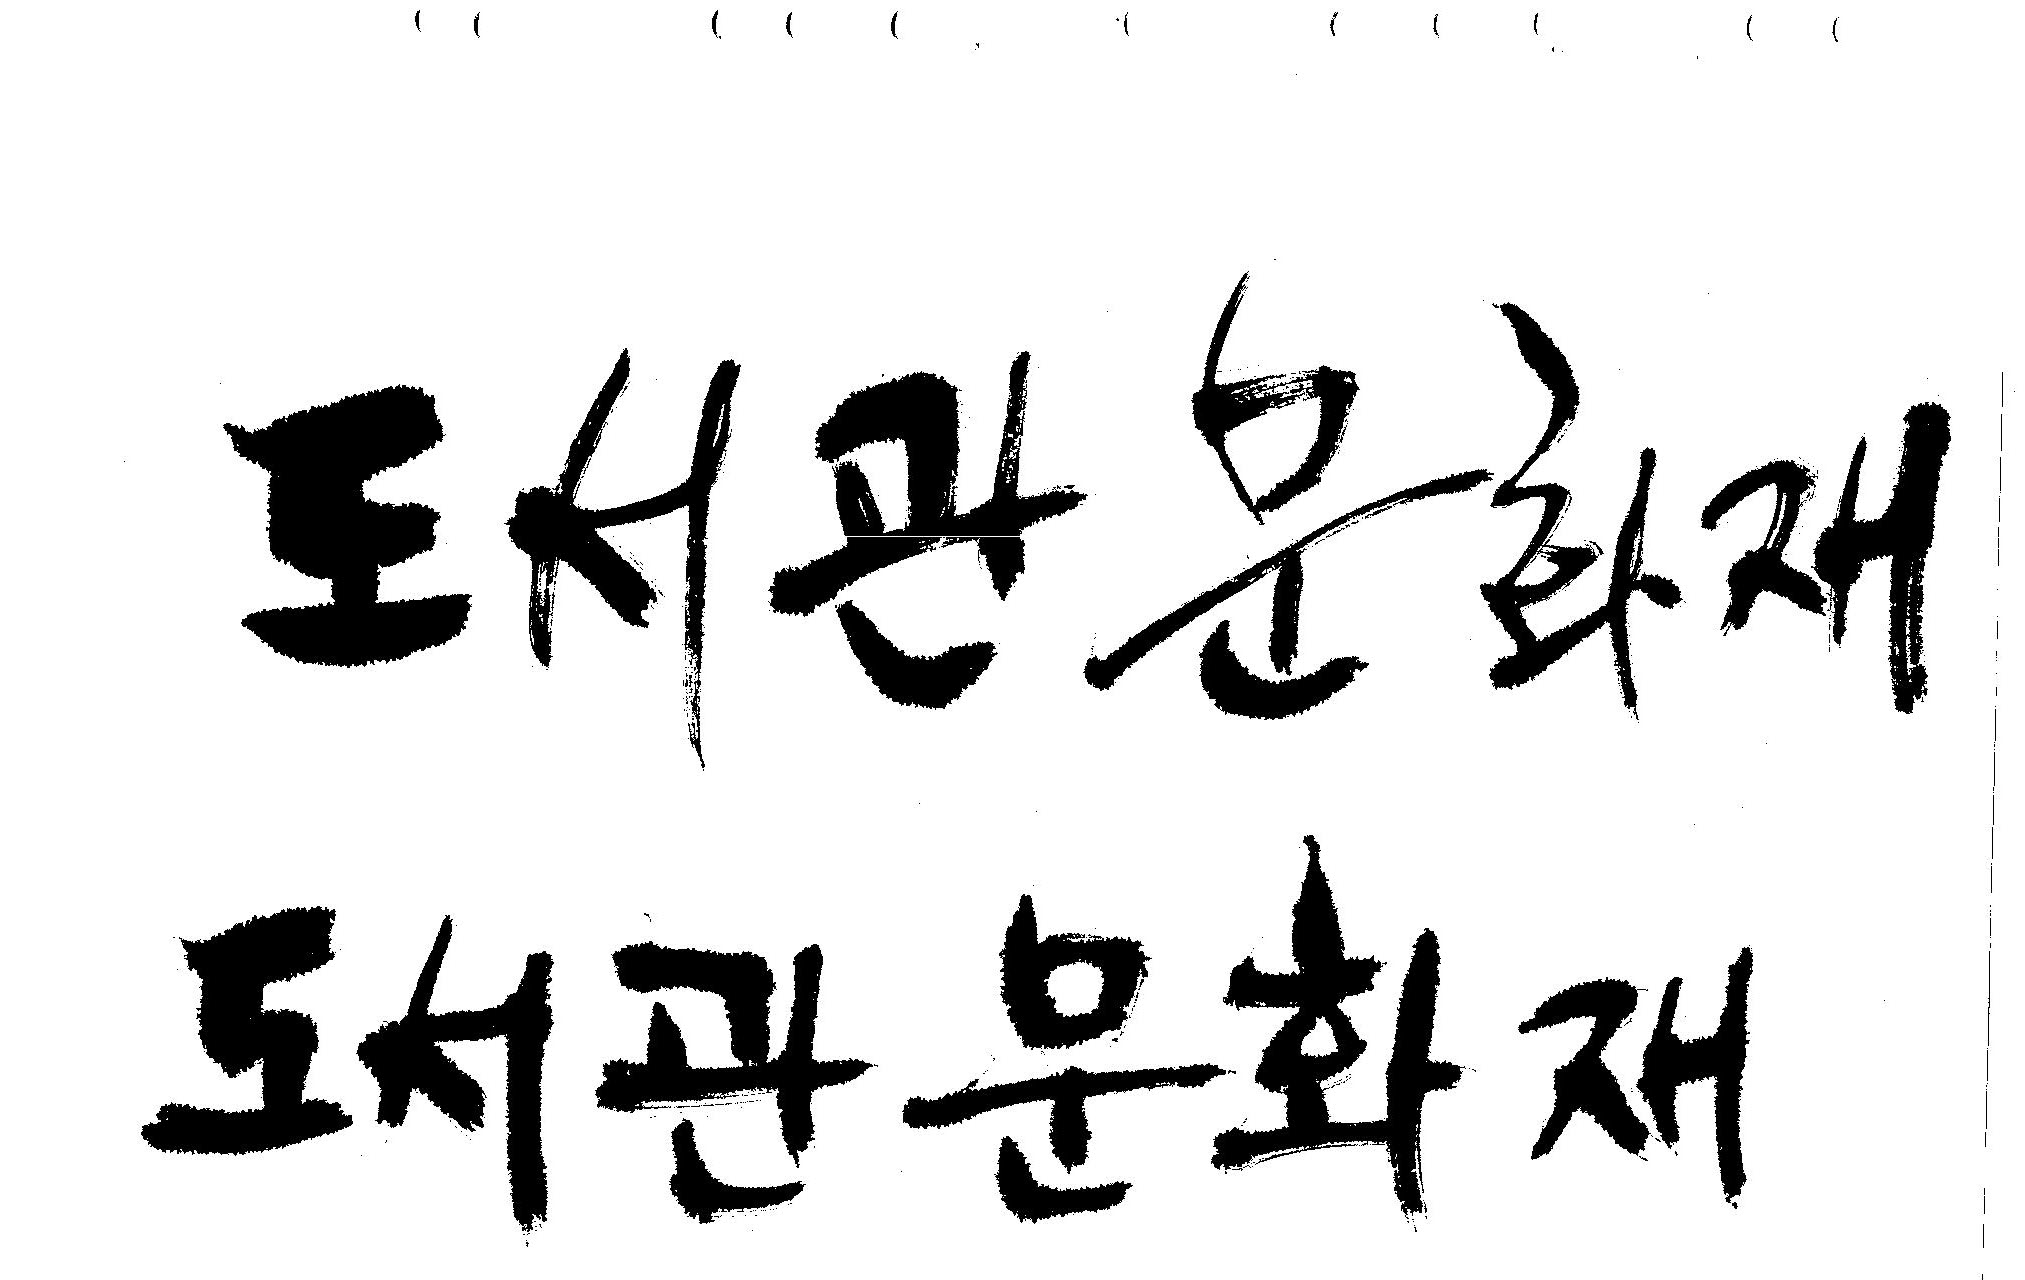 도서관 문화재
도서관 문화재